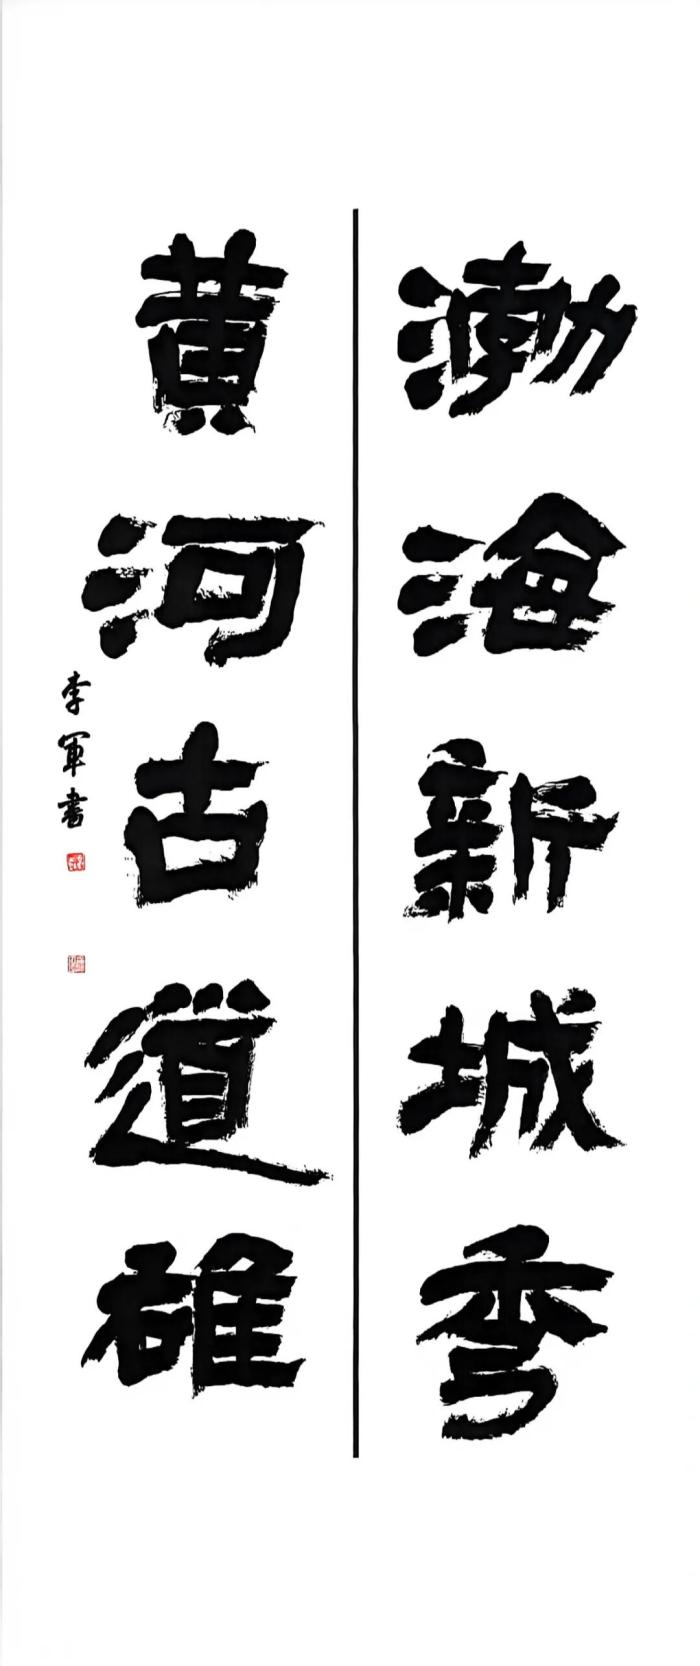 渤海新城秀
黄河古道雄
李军書